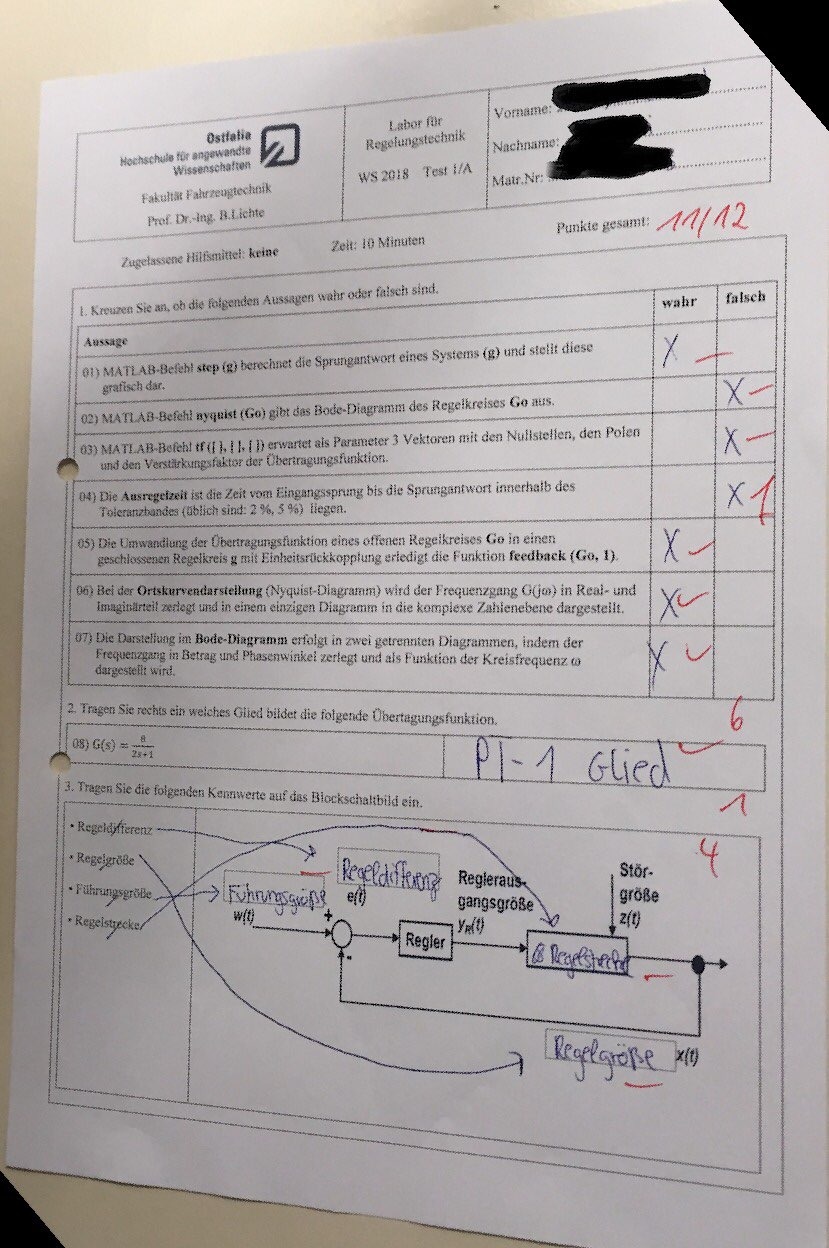 Ostfalia
Hochschule für angewandte
Wissenschaften
Fakultät Fahrzeugtechnik
Prof. Dr.-Ing. B.Lichte
Labor für
Regelungstechnik
WS 2018 Test 1/A
Vorname:
Nachname:
Matr.Nr:
Zugelassene Hilfsmittel: keine Zeit: 10 Minuten Punkte gesamt: 11/12
1. Kreuzen Sie an, ob die folgenden Aussagen wahr oder falsch sind.
Aussage wahr falsch
01) MATLAB-Befehl step (g) berechnet die Sprungantwort eines Systems (g) und stellt diese X
grafisch dar.
02) MATLAB-Befehl nyquist (Go) gibt das Bode-Diagramm des Regelkreises Go aus. X
03) MATLAB-Befehl tf ([ ], [ ], [ ]) erwartet als Parameter 3 Vektoren mit den Nullstellen, den Polen X
und den Verstärkungsfaktor der Übertragungsfunktion.
04) Die Ausregelzeit ist die Zeit vom Eingangssprung bis die Sprungantwort innerhalb des X
Toleranzbandes (üblich sind: 2 %, 5 %) liegen.
05) Die Umwandlung der Übertragungsfunktion eines offenen Regelkreises Go in einen X
geschlossenen Regelkreis g mit Einheitsrückkopplung erledigt die Funktion feedback (Go, 1).
06) Bei der Ortskurvendarstellung (Nyquist-Diagramm) wird der Frequenzgang G(jω) in Real- und X
Imaginärteil zerlegt und in einem einzigen Diagramm in die komplexe Zahlenebene dargestellt.
07) Die Darstellung im Bode-Diagramm erfolgt in zwei getrennten Diagrammen, indem der X
Frequenzgang in Betrag und Phasenwinkel zerlegt und als Funktion der Kreisfrequenz ω
dargestellt wird.
6
2. Tragen Sie rechts ein welches Glied bildet die folgende Übertagungsfunktion.
08) G(s) = 8/(2s+1) PT-1 Glied
1
3. Tragen Sie die folgenden Kennwerte auf das Blockschaltbild ein.
4
• Regeldifferenz
• Regelgröße
• Führungsgröße
• Regelstrecke
Führungsgröße
w(t)
+
-
Regeldifferenz
e(t)
Regler
Regleraus-
gangsgröße
yR(t)
Stör-
größe
z(t)
Regelstrecke
Regelgröße x(t)